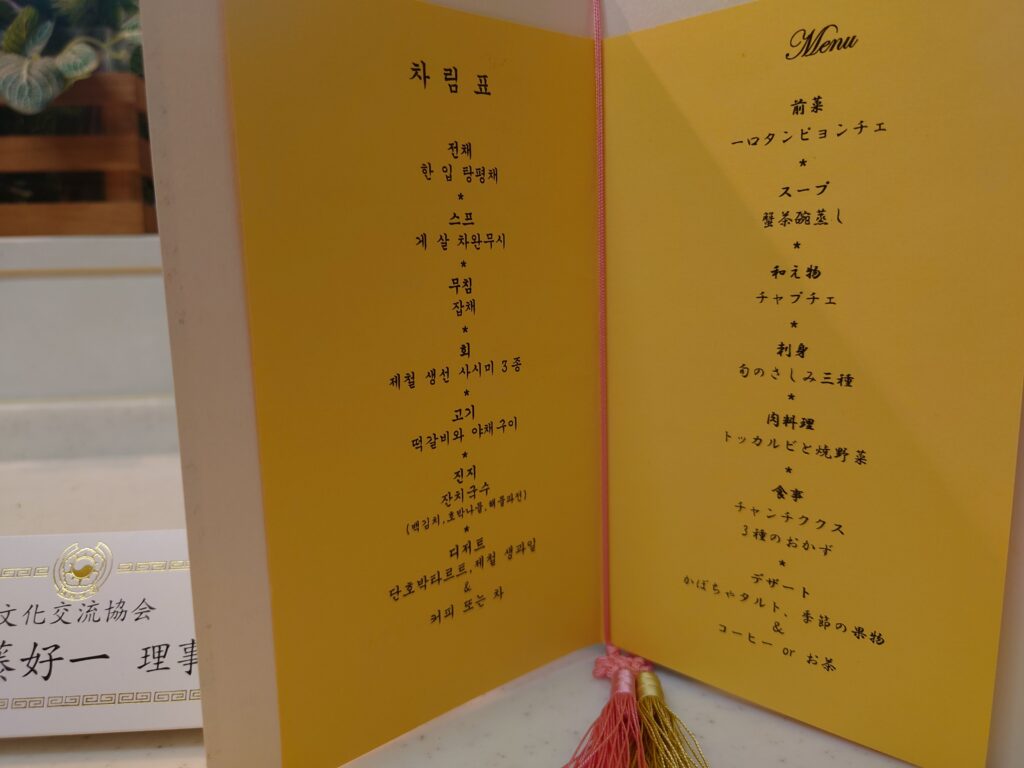 차림표
전채
한 입 탕평채
*
스프
게 살 차완무시
*
무침
잡채
*
회
제철 생선 사시미 3종
*
고기
떡갈비와 야채구이
*
진지
잔치국수
(백김치,호박나물,해물파전)
*
디저트
단호박타르트,제철 생과일
&
커피 또는 차
Menu
前菜
一口タンピョンチェ
*
スープ
蟹茶碗蒸し
*
和え物
チャプチェ
*
刺身
旬のさしみ三種
*
肉料理
トッカルビと焼野菜
*
食事
チャンチククス
3種のおかず
*
デザート
かぼちゃタルト、季節の果物
&
コーヒー or お茶
文化交流協会
藤好一 理事